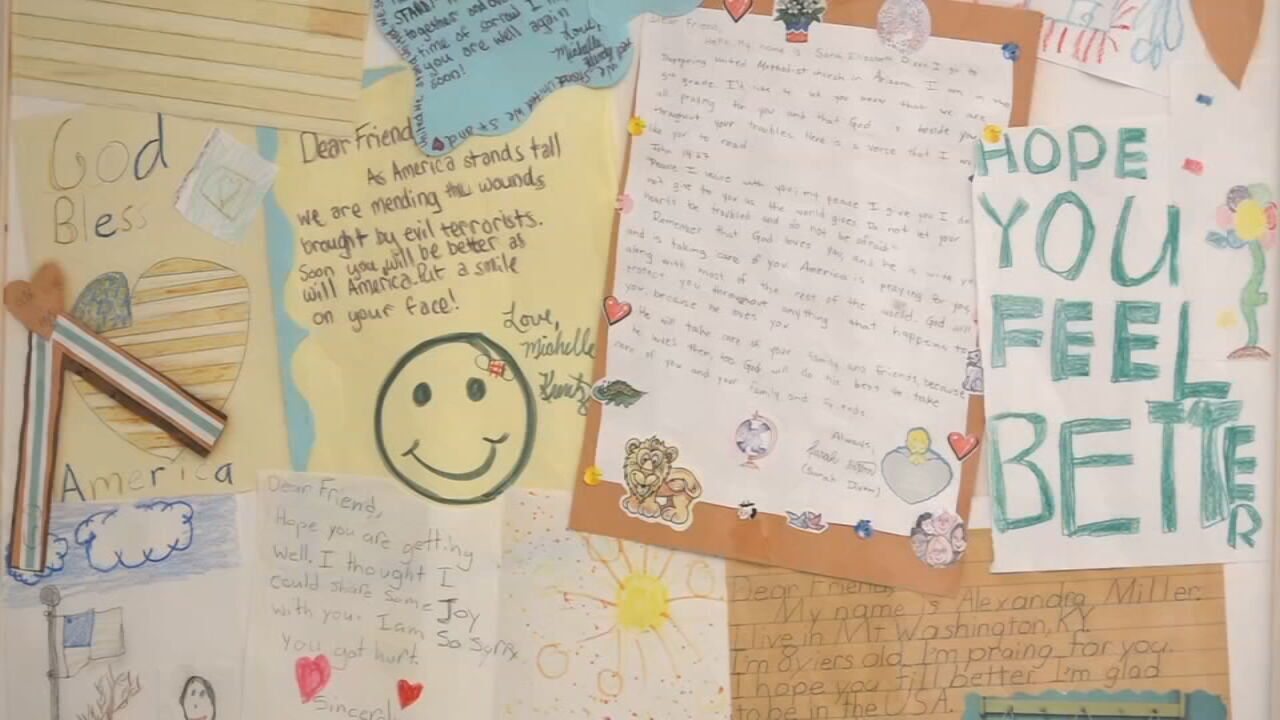 STAND!
together and
time of sorrow I
you are well again
soon!
Love,
Michelle
God
Bless
America
Dear Friend
As America stands tall
we are mending the wounds
brought by evil terrorists.
Soon you will be better as
will America. Put a smile
on your face!
Love,
Michelle
Kurtz
Dear Friend,
Hello, My name is Sara Elizabeth Dixon I go to
United Methodist church in Arizona. I am in the
grade. I'd like to let you know that we are
all praying for you and that God is beside you
throughout your troubles. Here is a verse that I
like you to read.
John 14:27
Peace I leave with you; my peace I give you I do
not give to you as the world gives. Do not let your
hearts be troubled and do not be afraid.
Remember that God loves you, and he is with
and is taking care of you. America is praying for you,
along with most of the rest of the world. God will
protect you throughout anything that happens to
you, because he loves you
He will take care of your family and friends, because
he loves them, too. God will do his best to take
care of you and your family and friends.
Always,
HOPE
YOU
FEEL
BETTER
Dear Friend,
Hope you are getting
Well. I thought I
could share some Joy
with you. I am so sorry
you got hurt.
Sincerel
Dear Friend,
My name is Alexandra Miller.
I live in Mt Washington, KY.
I'm 8 yiers old. I'm praing for you.
I hope you fill better I'm glad
to be in the USA.